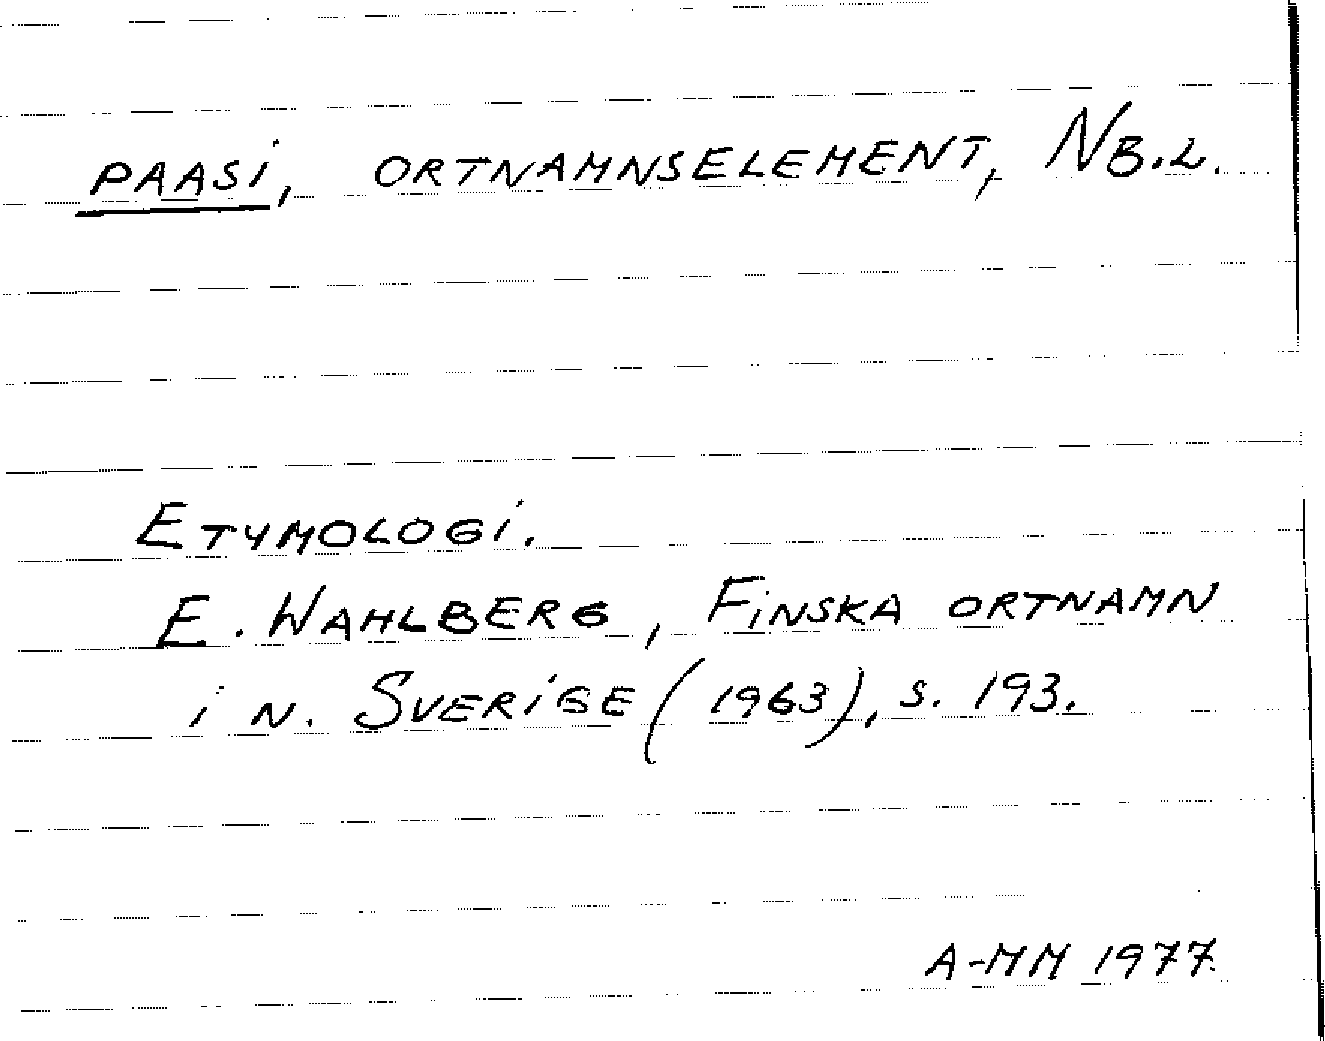 PAASI, ORTNAMNSELEMENT, NB.L.
ETYMOLOGI.
E. WAHLBERG, FINSKA ORTNAMN
I N. SVERIGE (1963), S. 193.
A-MM 1977